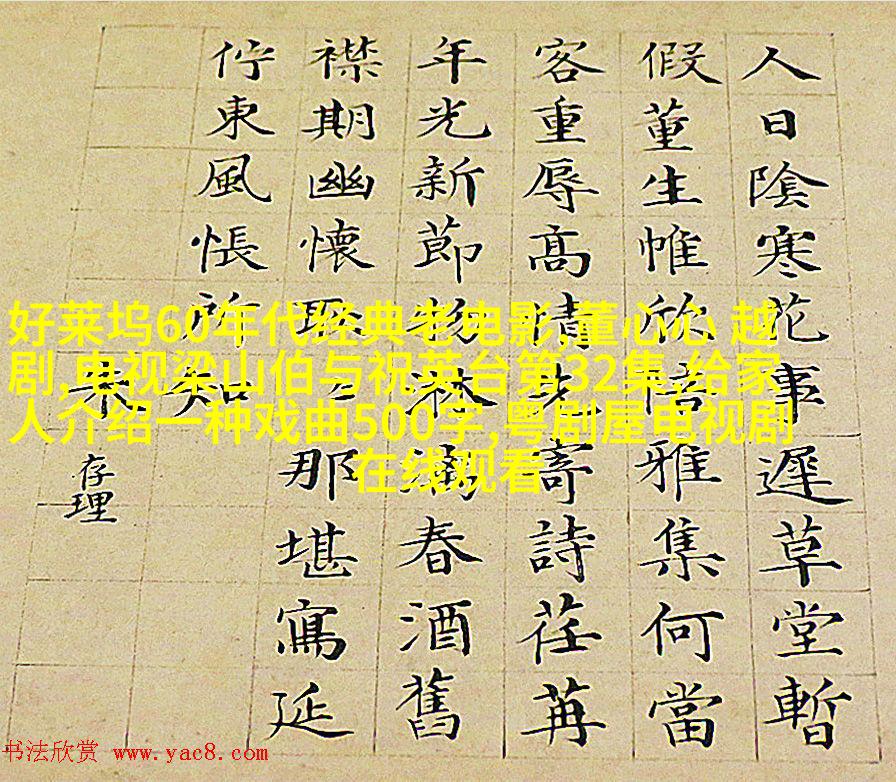 人日陰寒花事遲草堂暫
假董生帷欣陪雅集何當
客重辱高情先寄詩荏苒
年光新節物淋漓春酒舊
襟期幽懷〻那堪寫延
佇東風悵所知
朱
存理
好莱坞60年代经典老电影,董心心 越
剧,电视梁山伯与祝英台第32集,给家
人介绍一种戏曲500字,粤剧屋电视剧
在线观看
书法欣赏 www.yac8.com